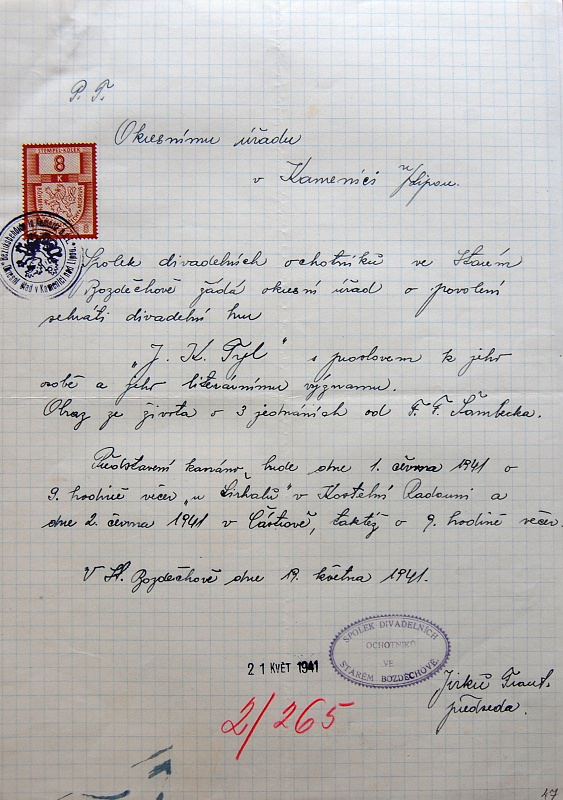 P. T.
Okresnímu úřadu
v Kamenici n/Lipou.
STEMPEL-KOLEK
8
K
Spolek divadelních ochotníků ve Starém
Bozděchově žádá okresní úřad o povolení
sehráti divadelní hru
„J. K. Tyl“ s proslovem k jeho
osobě a jeho literárnímu významu.
Obraz ze života o 3 jednáních od F. F. Šamberka.
Představení konáno bude dne 1. června 1941 o
9. hodině večer „u Sirkalů“ v Kostelní Radouni a
dne 2. června 1941 v Částrově, taktéž o 9. hodině večer.
V St. Bozděchově dne 19. května 1941.
SPOLEK DIVADELNÍCH
OCHOTNÍKŮ
VE
STARÉM BOZDĚCHOVĚ
21 KVĚT 1941
2/265
Jirků Frant.
předseda.
47